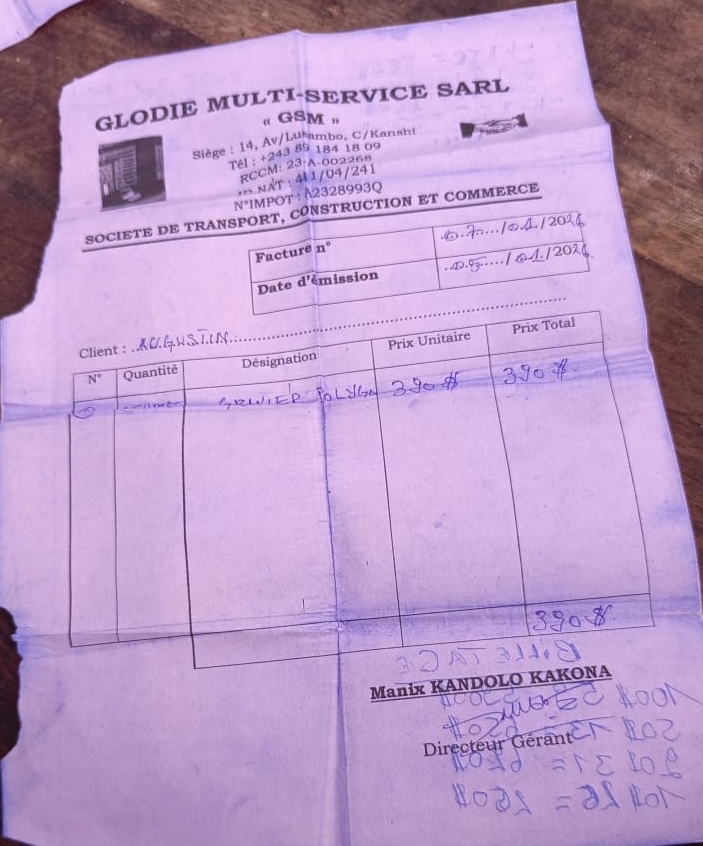 GLODIE MULTI-SERVICE SARL
« GSM »
Siège : 14, Av/Luhambo, C/Kanshi
Tél : +243 89 184 18 09
RCCM: 23-A-002268
NAT : 411/04/241
N°IMPOT : A2328993Q
SOCIETE DE TRANSPORT, CONSTRUCTION ET COMMERCE
Facture n° 07..../01/202
Date d'émission 05..../01/202
Client : AUGUSTIN
N° Quantité Désignation Prix Unitaire Prix Total
390 $ 390 $
390 $
BILLETAGE
Manix KANDOLO KAKONA
Directeur Gérant